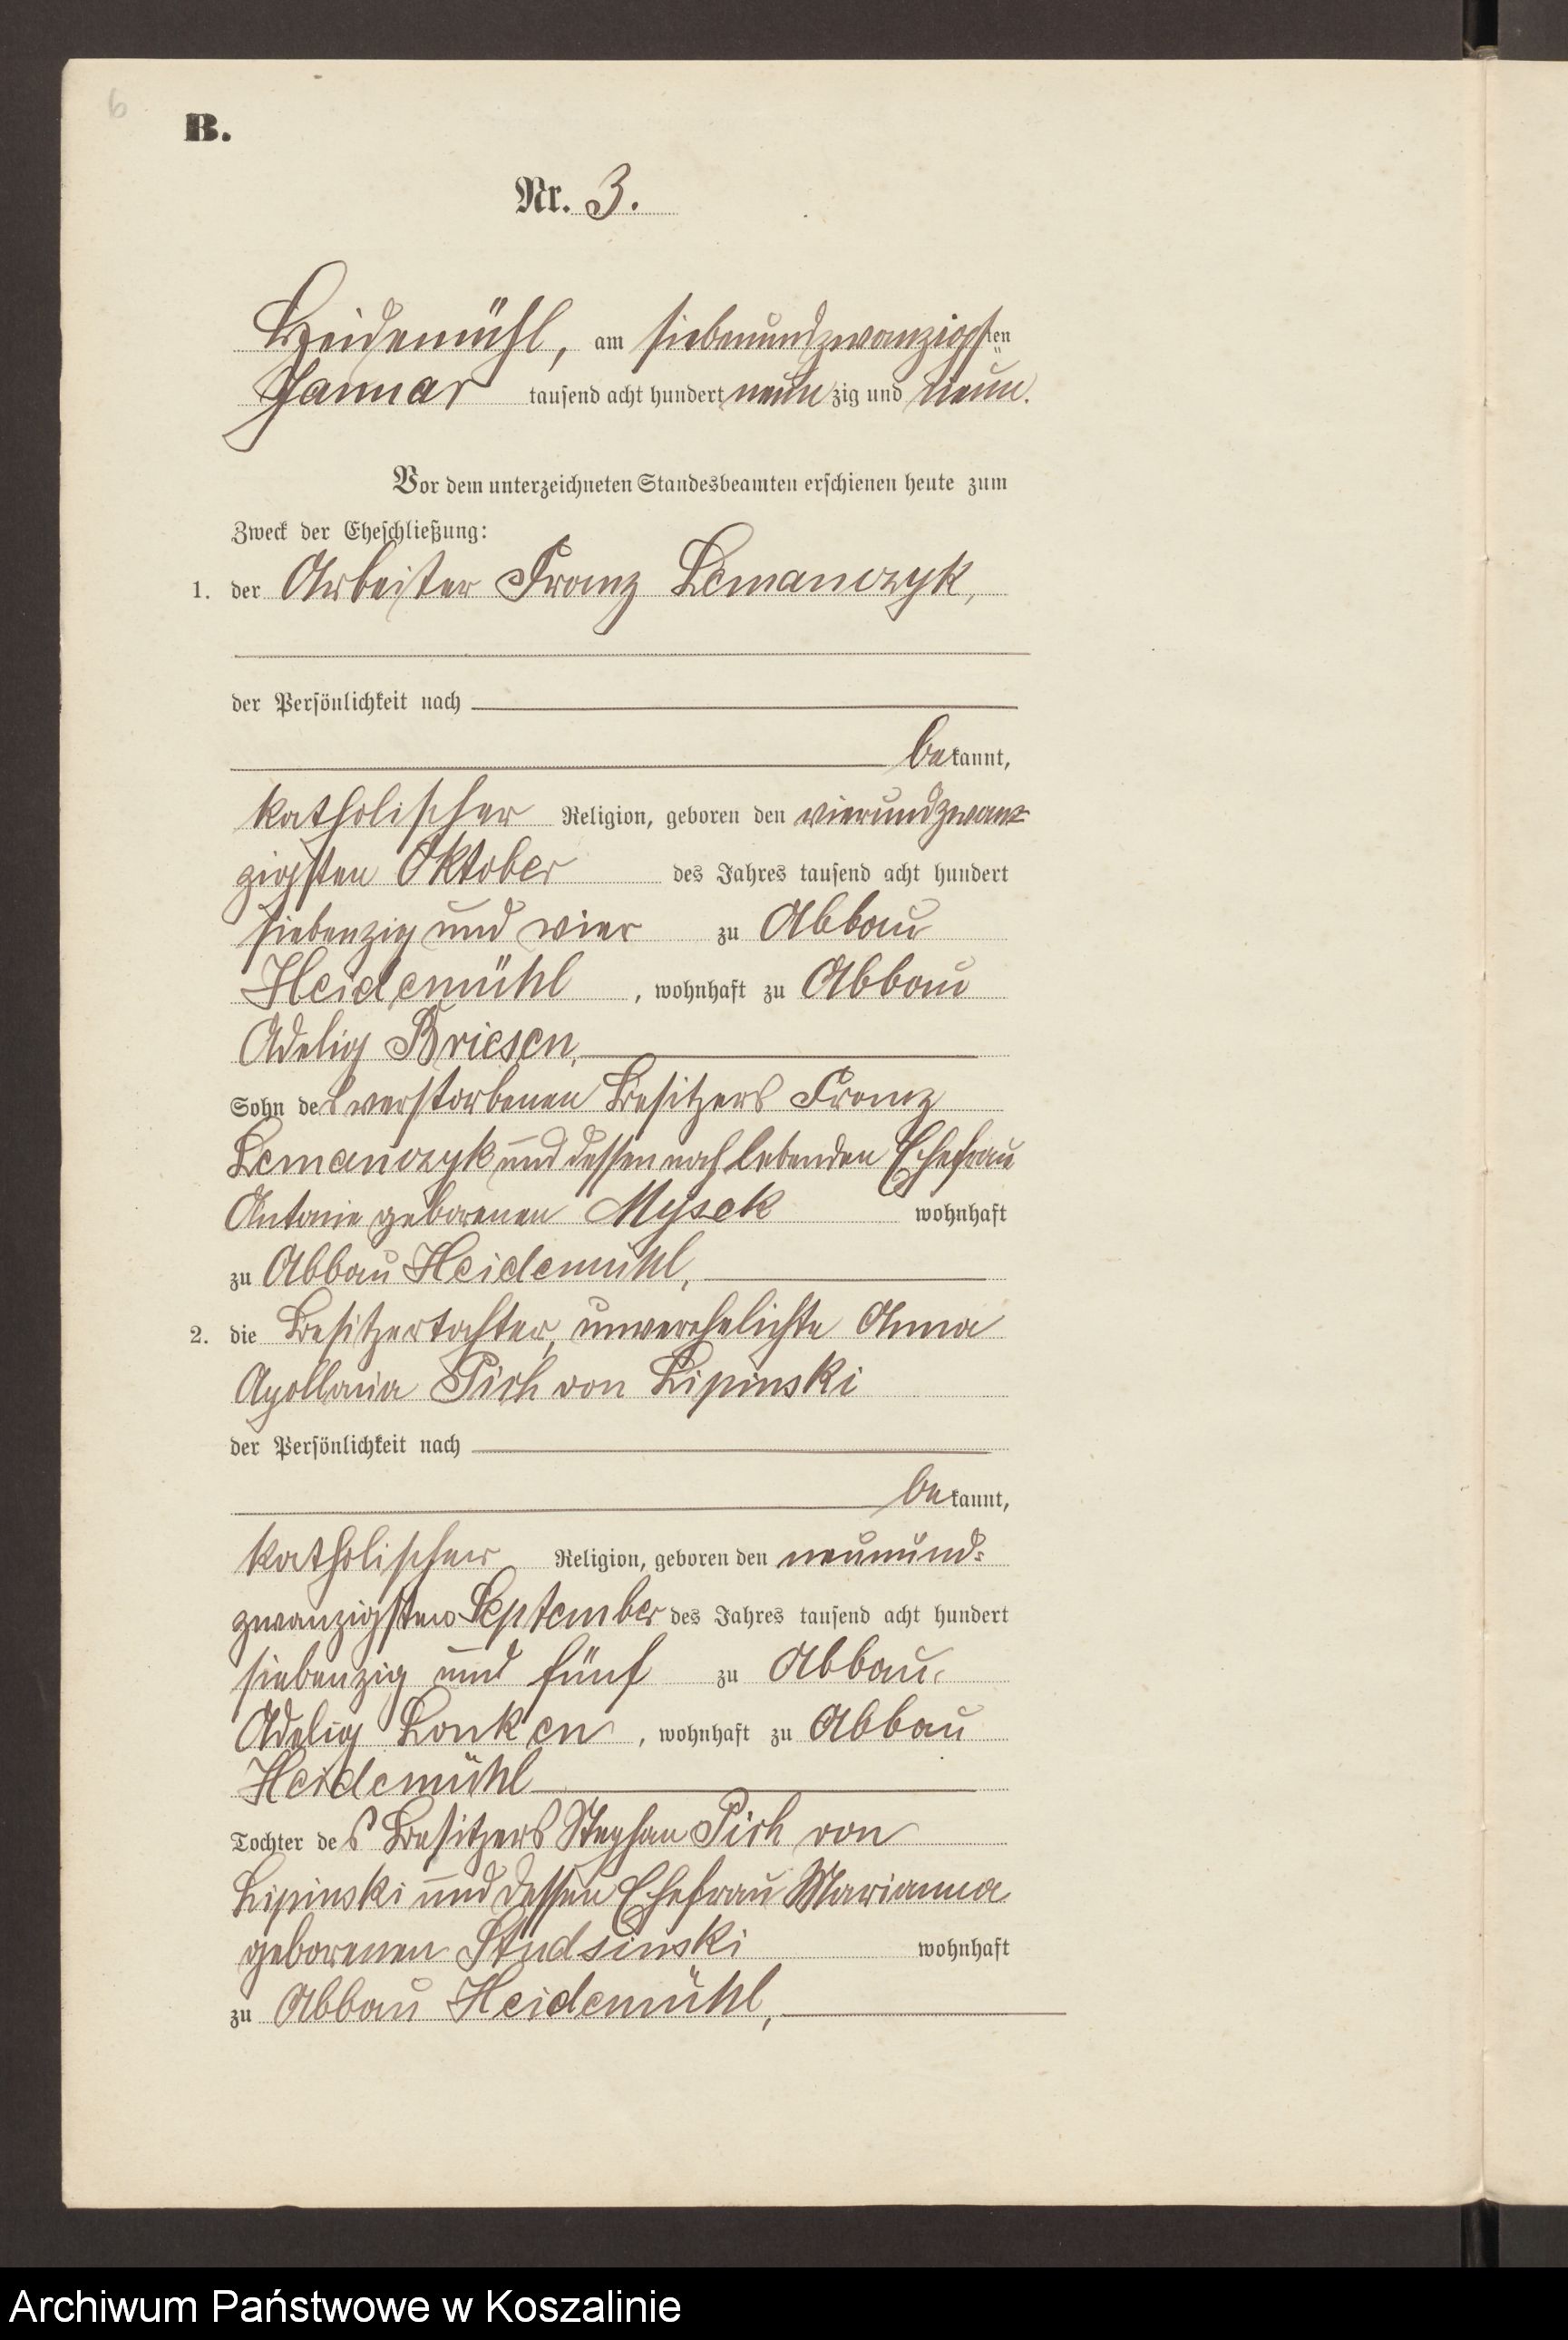 6
B.
Nr. 3.
Heidemühl, am siebenundzwanzigsten
Januar tausend acht hundert neunzig und neun.
Vor dem unterzeichneten Standesbeamten erschienen heute zum
Zweck der Eheschließung:
1. der Arbeiter Franz Lemanczyk,
der Persönlichkeit nach
bekannt,
katholischer Religion, geboren den vierundzwan-
zigsten Oktober des Jahres tausend acht hundert
siebenzig und vier zu Abbau
Heidemühl, wohnhaft zu Abbau
Adelig Briesen,
Sohn des verstorbenen Besitzers Franz
Lemanczyk und dessen noch lebenden Ehefrau
Antonie geborenen Mysek wohnhaft
zu Abbau Heidemühl,
2. die Besitzertochter, unverehelichte Anna
Apollonia Pich von Lipinski
der Persönlichkeit nach
bekannt,
katholischer Religion, geboren den neunund-
zwanzigsten September des Jahres tausend acht hundert
siebenzig und fünf zu Abbau
Adelig Lonken, wohnhaft zu Abbau
Heidemühl
Tochter des Besitzers Stephan Pich von
Lipinski und dessen Ehefrau Marianna
geborenen Studsinski wohnhaft
zu Abbau Heidemühl,
Archiwum Państwowe w Koszalinie